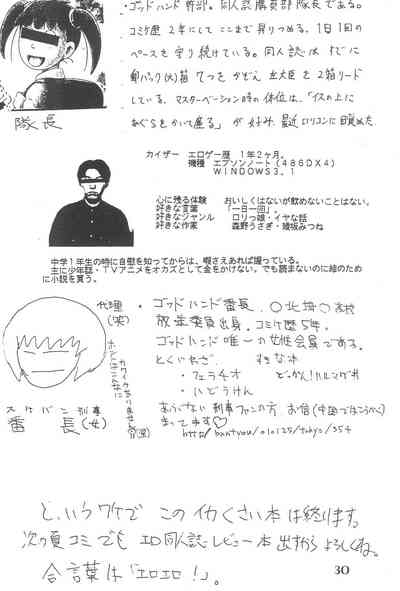 ・ゴッドハンド幹部。同人誌購買部隊長である。
コミケ歴2年にしてここまで昇りつめる、1日1回の
ペースを守り続けている。同人誌は すでに
2箱リード
している、マスターベーション時の体位は、「イスの上に
あぐらをかいて座る」が好み、最近ロリコンに目覚めた
隊長
カイザー エロゲー歴 1年2ヶ月。
機種 エプソンノート(486DX4)
WINDOWS3.1
心に残る体験 おいしくはないが飲めないことはない。
好きな言葉 「一日一回」。
好きなジャンル ロリっ娘・イヤな話
好きな作家 森野うさぎ・綾坂みつね
中学1年生の時に自慰を知ってからは、暇さえあれば握っている。
主に少年誌・TVアニメをオカズとして金をかけない。でも読まないのに絵のため
に小説を買う。
代理(笑)
・ゴッドハンド番長、
放送委員出身。コミケ歴5年。
ゴッドハンド唯一の女性会員である。
とくいわざ すきな本
・フェラチオ どっかん!ハルマゲ丼
・いどうけん
スケバン刑事
番長(女)
あぶない刑事ファンの方、お信
まってます♡
というワケで このイカくさい本は終ります。
次の夏コミでも エロ同人誌レビュー本 出すから よろしくね。
合言葉は「エロエロ!」。
30